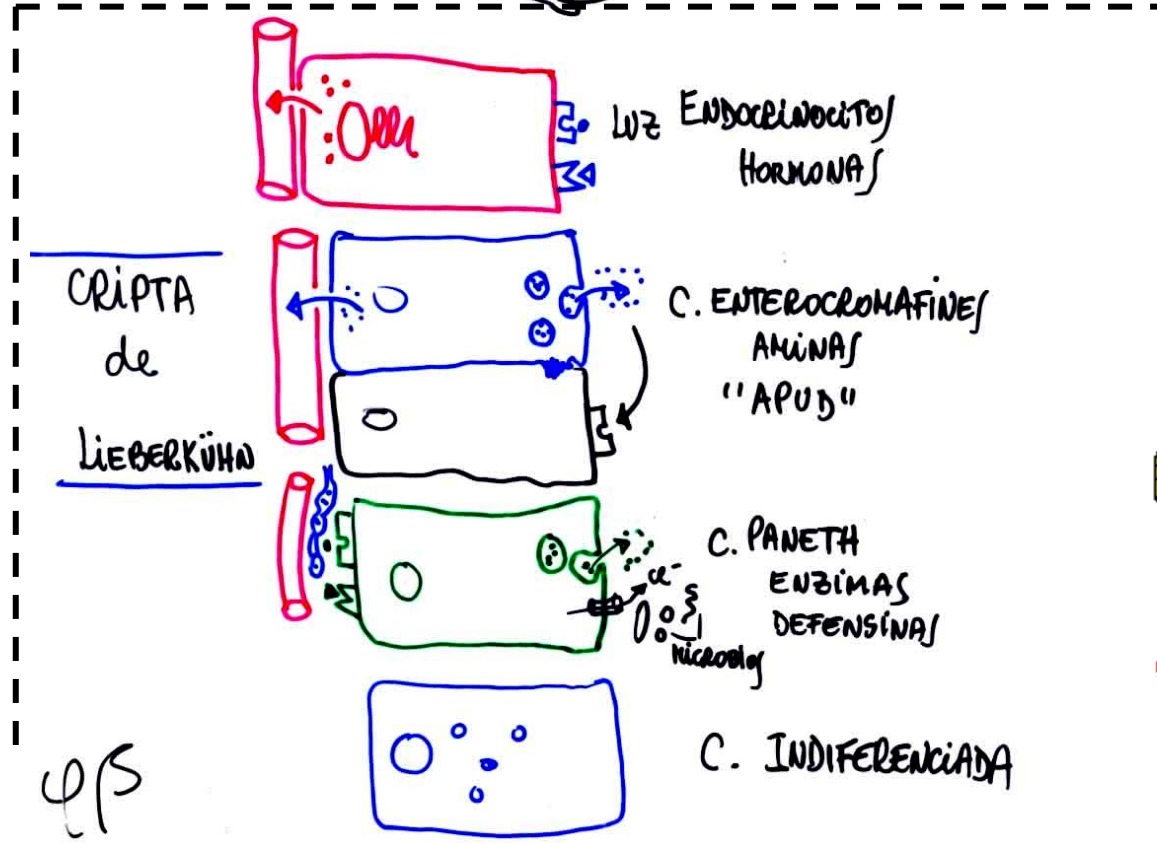 LUZ ENDOCRINOCITOS
HORMONAS
CRIPTA
de
LIEBERKÜHN
C. ENTEROCROMAFINES
AMINAS
"APUD"
C. PANETH
ENZIMAS
DEFENSINAS
Cl-
MICROBIOS
C. INDIFERENCIADA